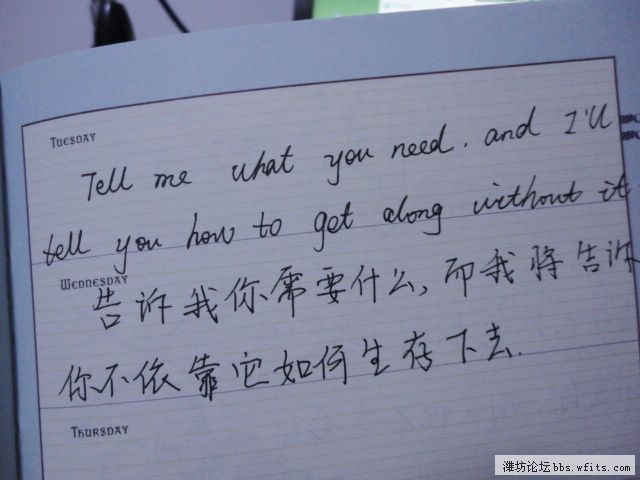 TUESDAY
Tell me what you need. and I'll
tell you how to get along without it
WEDNESDAY
告诉我你需要什么,而我将告诉
你不依靠它如何生存下去.
THURSDAY
潍坊论坛bbs.wfits.com